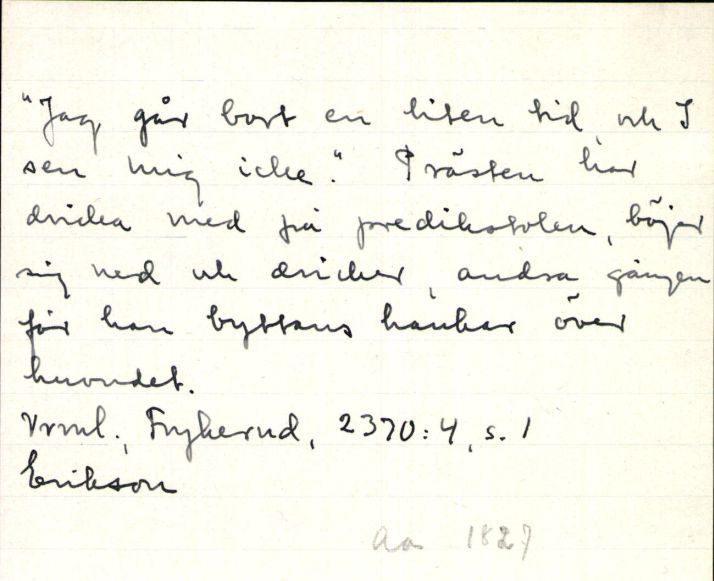 "Jag går bort en liten tid och I
sen mig icke." Prästen har
dricka med på predikstolen, böjer
sig ned och dricker, andra gången
får han byttans hankar över
huvudet.
Vrml., Frykerud, 2370:4, s. 1
Erikson
Aa 1827